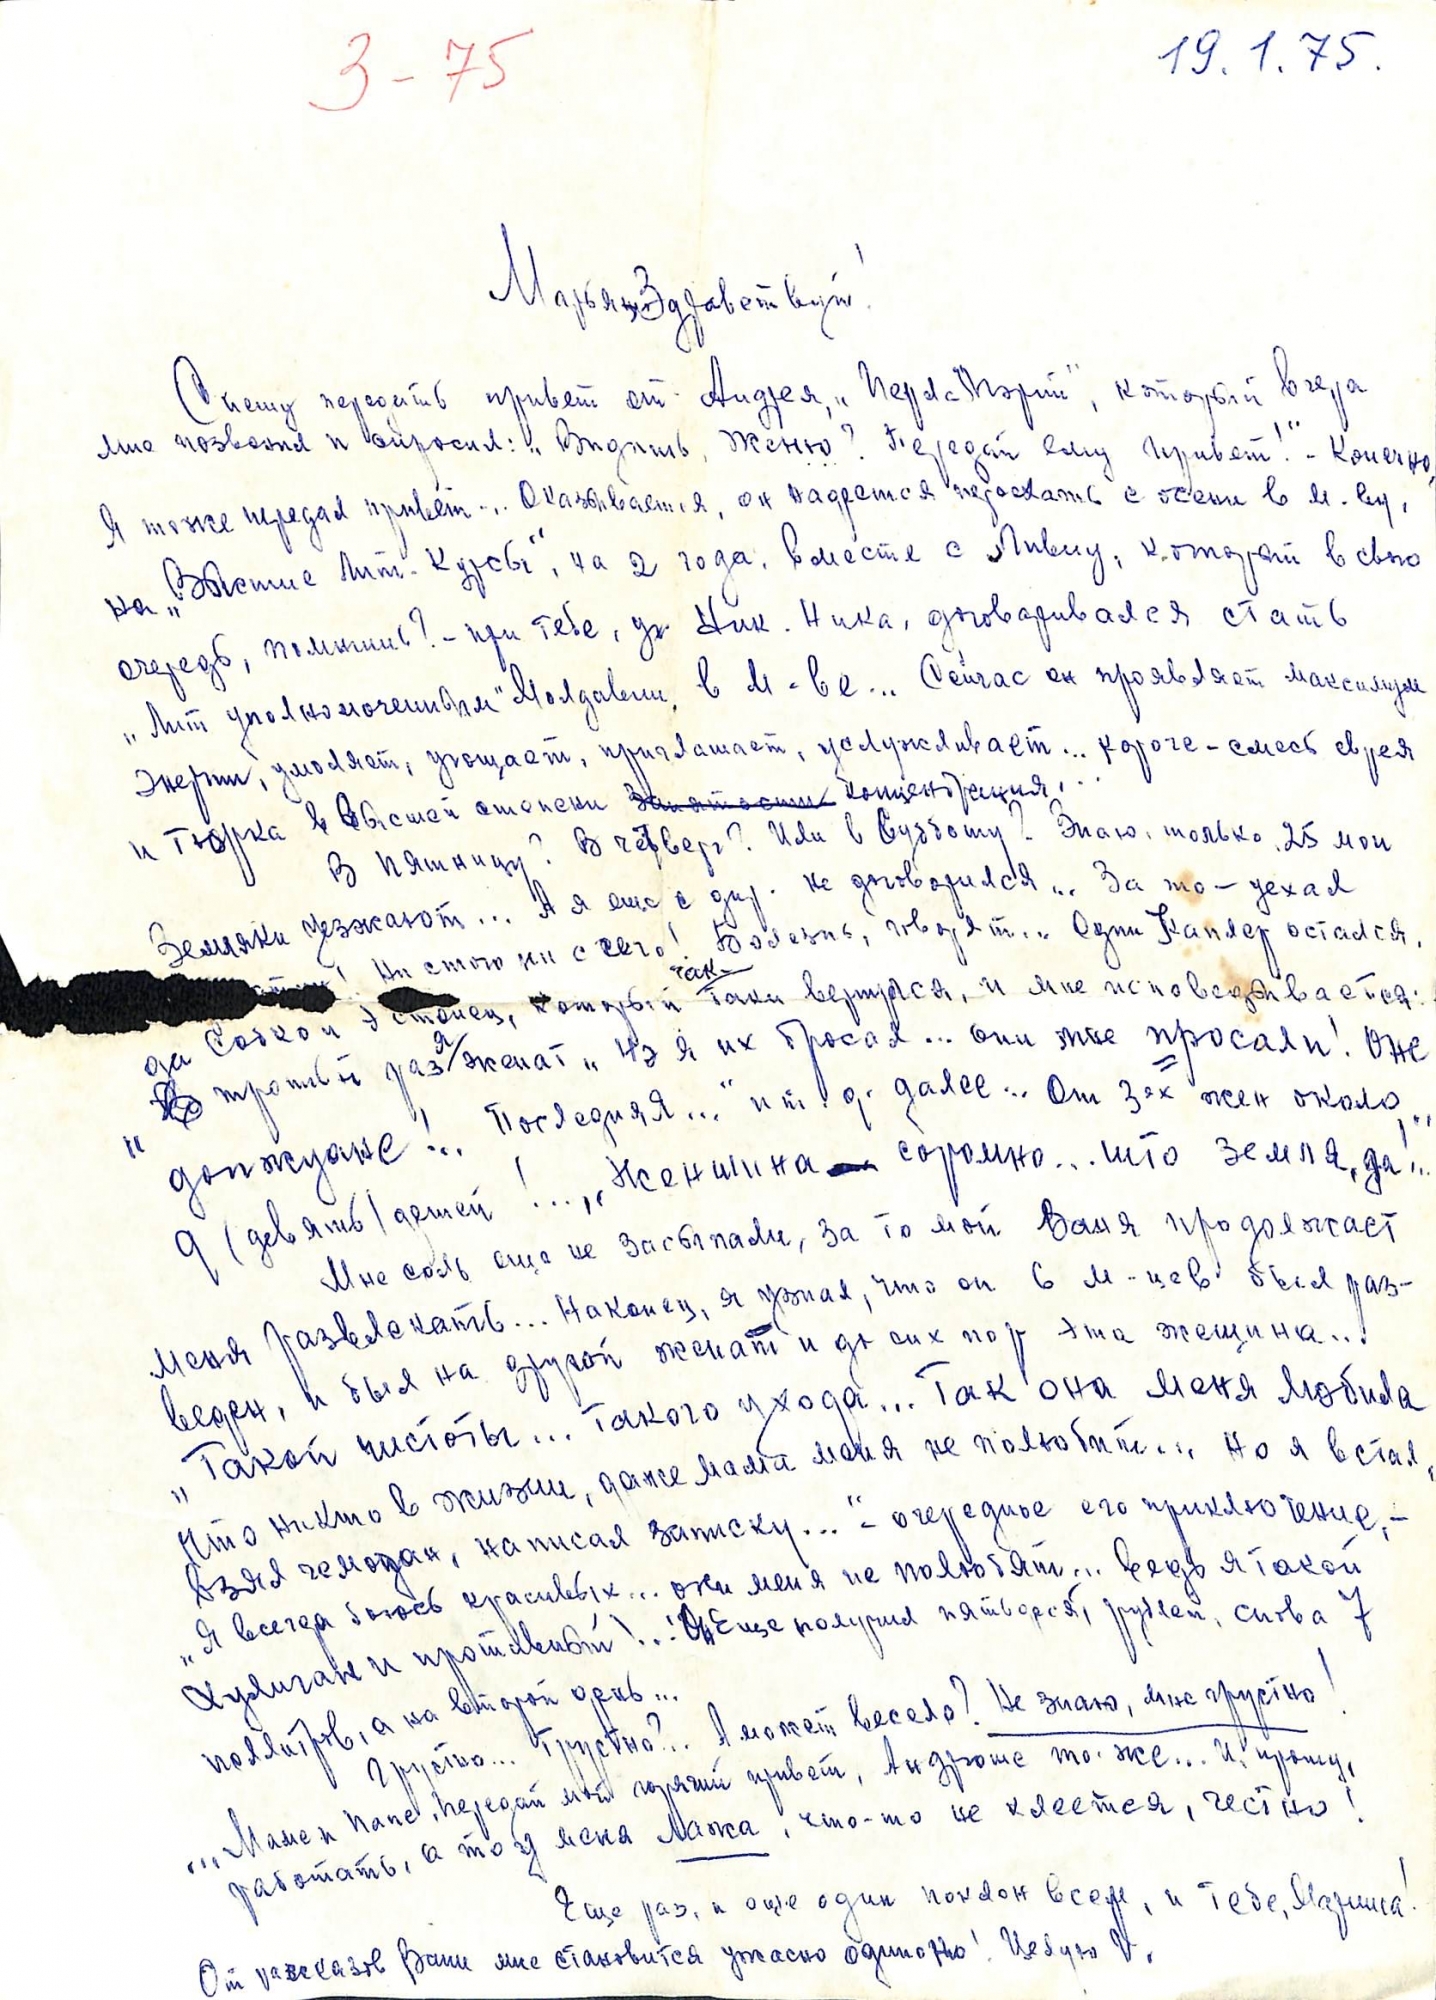 3-75
19.1.75.
Марьян, Здравствуй!
Спешу передать привет от Андрея, который вчера
мне позвонил и спросил: „Видишь, Женю? Передай ему привет!" - Конечно,
Я тоже передал привет... Оказывается, он надеется с осени в М-ву,
на „Высшие Лит. Курсы", на 2 года, вместе с Ливиу, который в свою
очередь, помнишь? - при тебе, у Ник. Ника, договаривался стать
„Лит уполномоченным" Молдавии, в М-ве... Сейчас он проявляет максимум
энергии, умоляет, угощает, приглашает, услуживает... короче - смесь еврея
и тюрка в высшей степени концентрация...
В пятницу? В четверг? Или в субботу? Знаю, только 25 мои
Земляки уезжают... А я еще с дир. не договорился... За то - уехал
Ни с того ни с сего! Болезнь, говорят... Один Каплер остался,
да Собкой Эстонец, который так таки вернулся, и мне исповедывается:
„третий раз я женат „Нэ я их бросал... они мне просали! Оне
донжуане!.. Последняя..." и т. д. далее... От 3ех жен около
9 (девять) детей!... „Женшина соромно... што земля, да!"..
Мне соль еще не засыпали, за то мой Ваня продолжает
меня развлекать... Наконец, я узнал, что он 6 м-цев был раз-
веден, и был на другой женат и до сих пор эта женщина...
„Такой чистоты... Такого ухода... Так она меня любила
что никто в жизни, даже мама меня не полюбит... Но я встал,
взял чемодан, написал записку..." - очередное его приключение, -
„Я всегда боюсь красивых... они меня не полюбят... ведь я такой
хулиган и противный!.. Еще получил рублей, снова 7
поллитров, а на второй день...
Грустно... Грустно?.. А может весело? Не знаю, мне грустно!
...Маме и Папе, передай мой горячий привет, Андрюше то-же... И, прошу,
работать, а то у меня Лажа, что-то не клеется, честно!
Еще раз, и още один поклон всем, и тебе, Марина!
От рассказов Вани мне становится ужасно одиноко! Целую V.